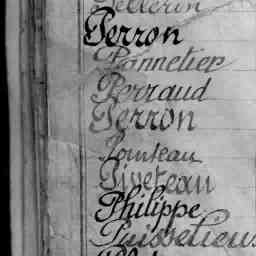 Pellerin
Perron
Pannetier
Perraud
Perron
Pouteau
Piveteau
Philippe
Puisselieus